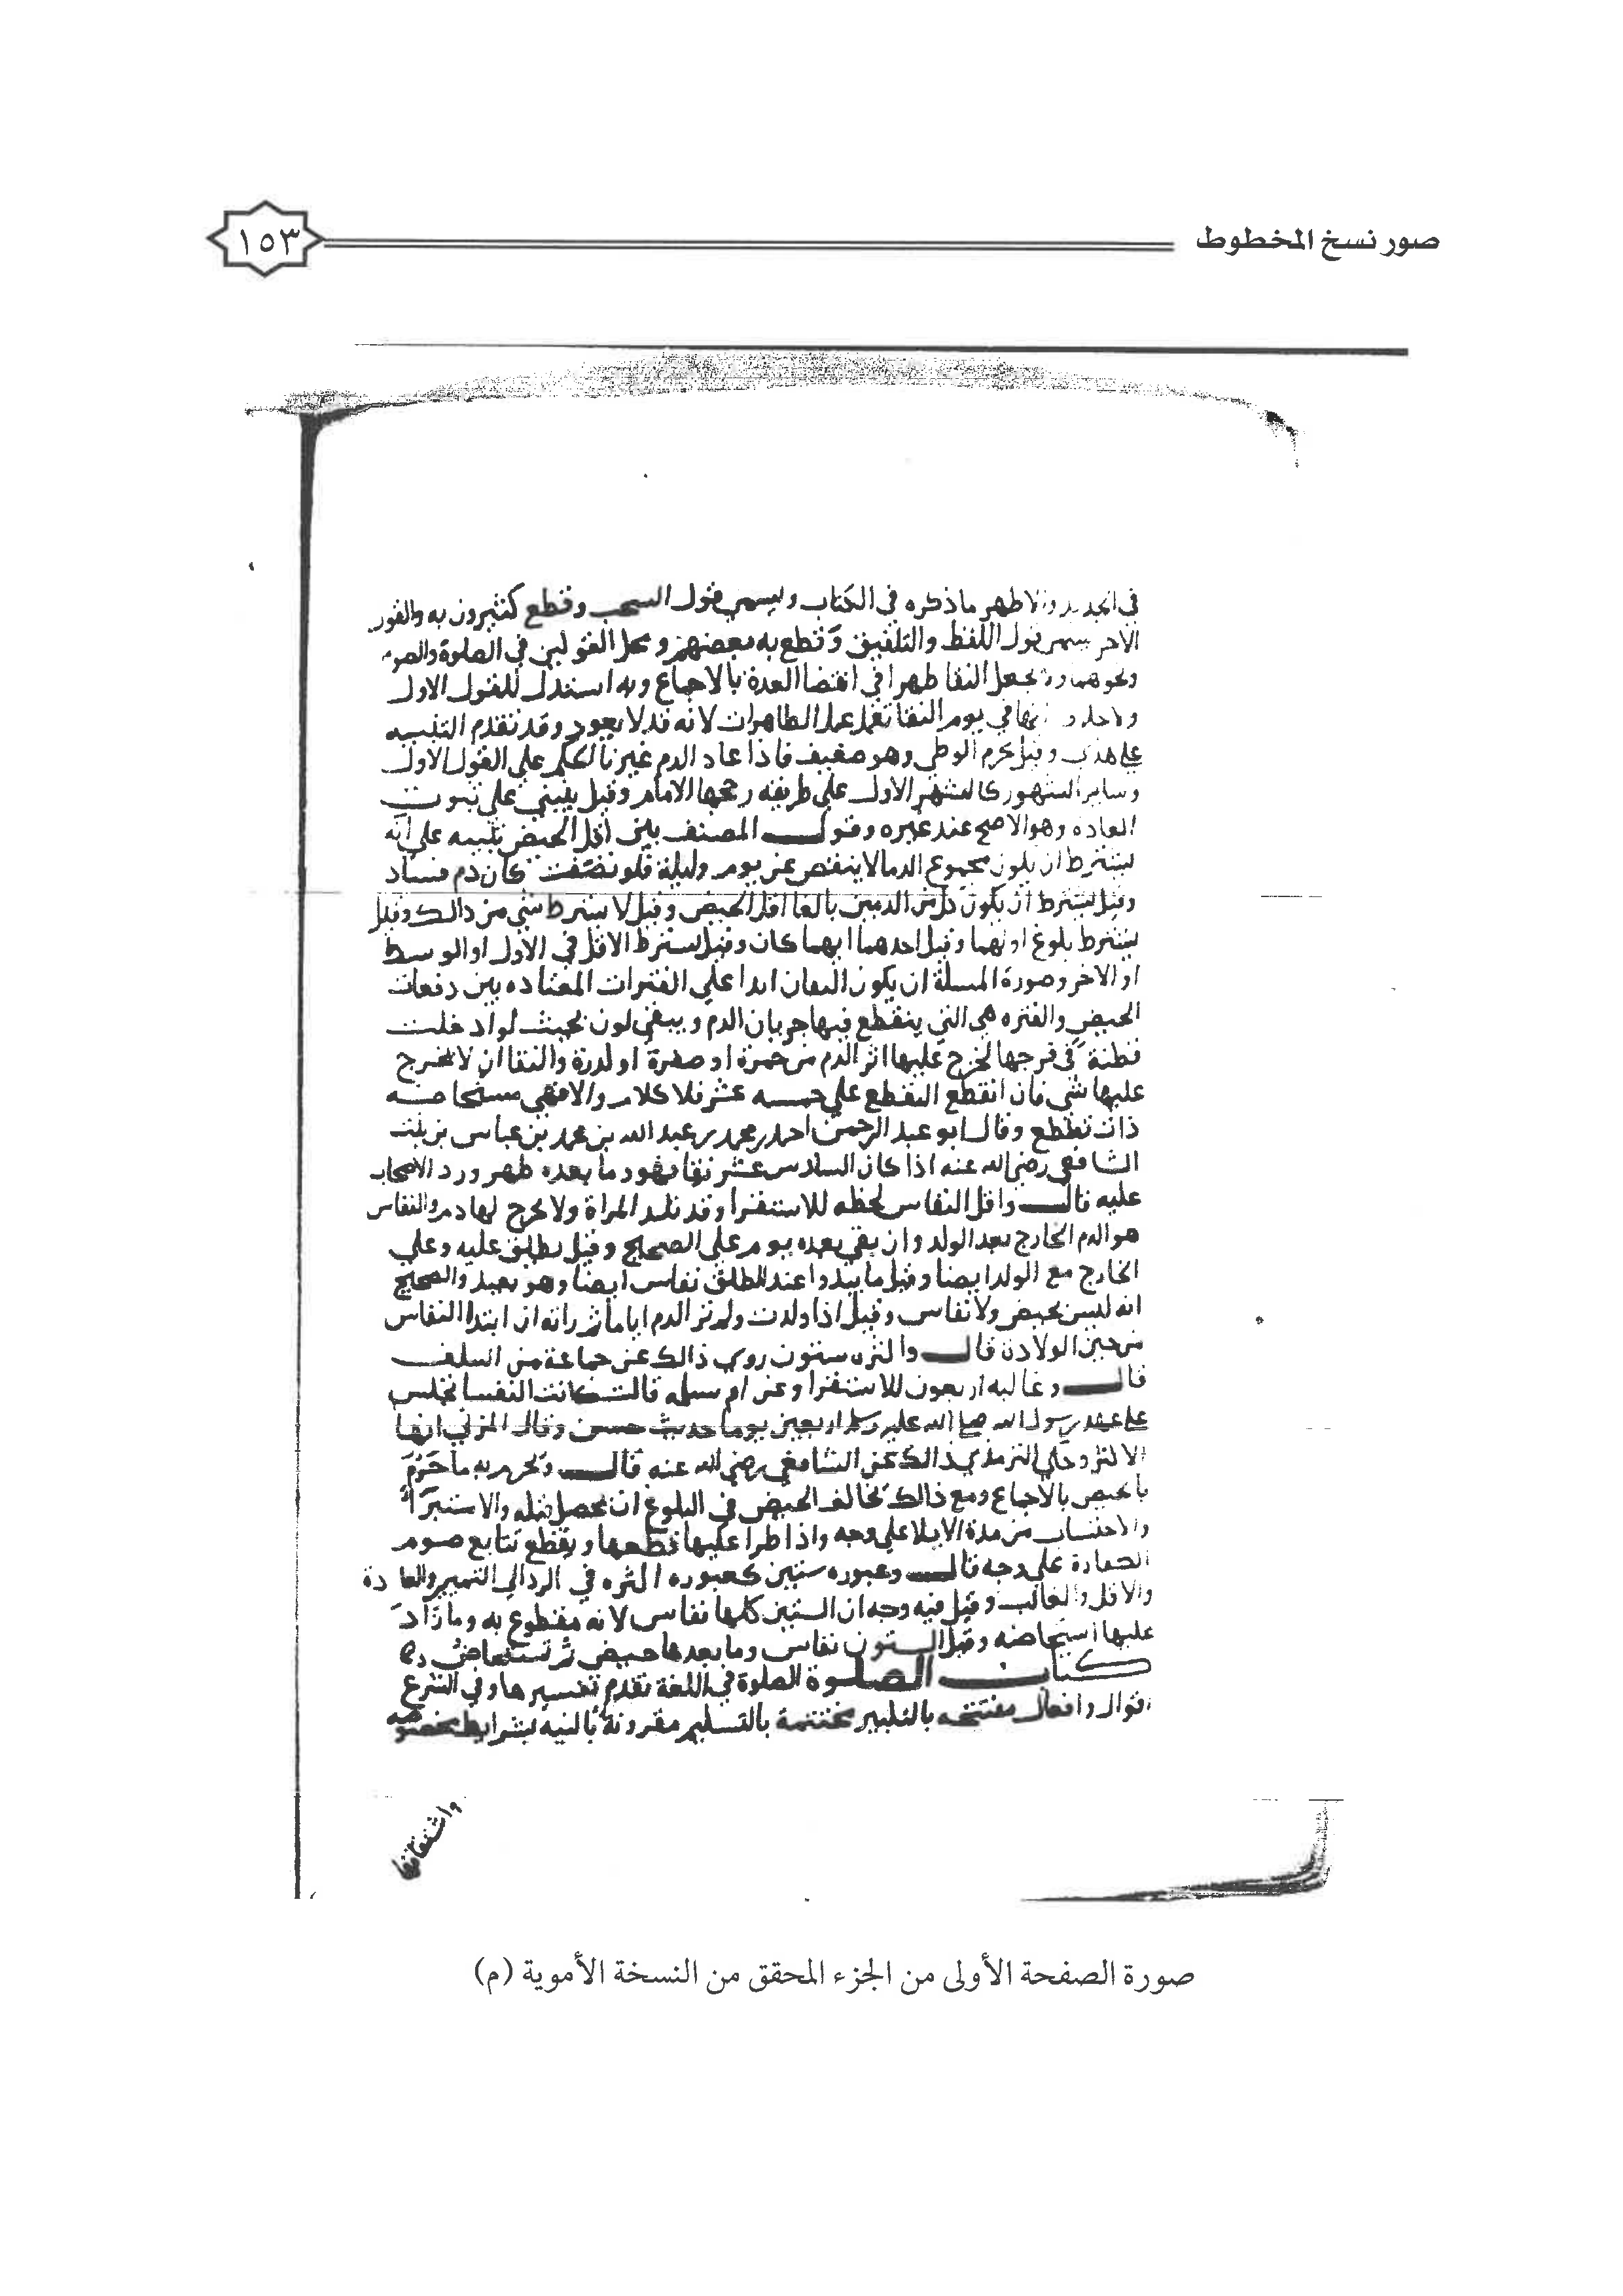 صور نسخ المخطوط
١٥٣
ماذكره في الكتاب ويسمي قول السحب وقطع كثيرون به والقول
الاخر يسمى قول اللفظ والتلفيق وقطع به بعضهم ومحل القولين في الصلوة والصوم
ونحوهما ولا يجعل النقا طهرا في انقضا العدة بالاجماع وبه استدل للقول الاول
في يوم النقا تعمل عمل الطاهرات لانه قد لا يعود وقد تقدم التنبيه
على هذا وقيل يحرم الوطي وهو ضعيف فاذا عاد الدم غيرنا الحكم علي القول الاول
وساير الشهور كالشهر الاول علي طريقه رجحها الامام وقيل ينبني علي ثبوت
العاده وهو الاصح عند غيره وقول المصنف بين اقل الحيض تنبيه علي انه
يشترط ان يكون مجموع الدما لا ينقص عن يوم وليلة فلو نقصت كان دم فساد
وقيل يشترط ان يكون كل من الدمين بالغا اقل الحيض وقيل لا يشترط شي من ذالك وقيل
يشترط بلوغ اولهما وقيل احدهما ايهما كان وقيل يشترط الاقل في الاول او الوسط
او الاخر وصورة المسلة ان يكون النقا زايدا علي الفترات المعتاده بين دفعات
الحيض والفتره هي التي ينقطع فيها جريان الدم ويبقي لون بحيث لو ادخلت
قطنة في فرجها لخرج عليها اثر الدم من حمرة او صفرة او كدرة والنقا ان لا يخرج
عليها شي فان انقطع التقطع علي خمسه عشر فلا كلام والا فهي مستحاضه
ذات تقطع وقال ابو عبد الرحمن احمد بن محمد بن عبد الله بن محمد بن عباس بن بنت
الشافعي رضي الله عنه اذا كان السادس عشر نقا فهو وما بعده طهر ورد الاصحاب
عليه قال واقل النفاس لحظه للاستقرا وقد تلد المراة ولا يخرج لها دم والنفاس
هو الدم الخارج بعد الولد وان بقي بعده يوم علي الصحيح وقيل يطلق عليه وعلي
الخارج مع الولد ايضا وقيل ما يبدوا عند الطلق نفاس ايضا وهو بعيد والصحيح
انه ليس بحيض ولا نفاس وقيل اذا ولدت ولم تر الدم اياما ثم راته ان ابتدا النفاس
من حين الولادة قال واكثره ستون روي ذالك عن جماعة من السلف
قال وغالبه اربعون للاستقرا وعن ام سلمه قالت كانت النفسا تجلس
على عهد رسول الله صلى الله عليه وسلم اربعين يوما حديث حسن وقال المزني انها
الاكثر وحكي الترمذي ذالك عن الشافعي رضي الله عنه قال ويحرم به ما حرم
بالحيض بالاجماع ومع ذالك يخالف الحيض في البلوغ ان يحصل قبله والاستبرا
والاحتساب من مدة الايلا علي وجه واذا طرا عليها قطعها ويقطع تتابع صوم
الكفارة على وجه قال وعبوره ستين كعبوره اكثره في الرد الي التمييز والعادة
والاقل والغالب وقيل فيه وجه ان الستين كلها نفاس لانه مقطوع به وما زاد
عليها استحاضه وقيل الستون نفاس وما بعدها حيض ثم تستحاض
كتاب الصلوة الصلوة في اللغة تقدم تفسيرها وفي الشرع
اقوال وافعال مفتتحه بالتكبير مختتمة بالتسليم مقرونة بالنيه بشرايط مخصوصه
واشتقاقها
صورة الصفحة الأولى من الجزء المحقق من النسخة الأموية (م)